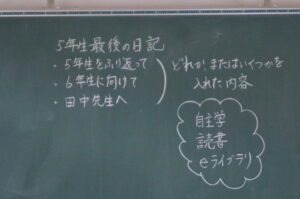 5年生最後の日記
・5年生をふり返って
・6年生に向けて
・田中先生へ
どれか、またはいくつかを
入れた内容
自主学
読書
eライブラリ